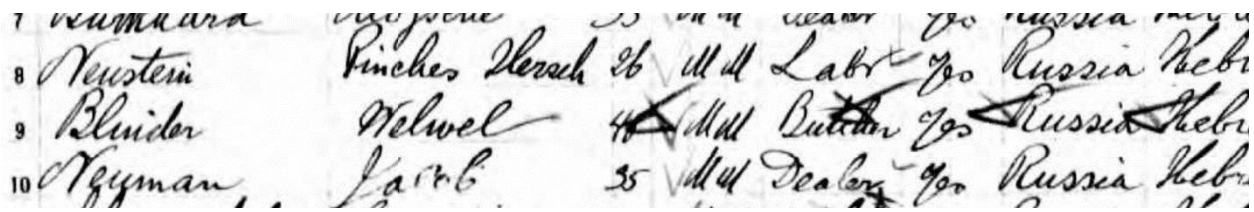 Russia
8 Neustein Pinches Hersch 26 M M Labr Yes Russia Hebr
9 Blinder Welwel M M Butcher Yes Russia Hebr
10 Neuman Jacob 35 M M Dealer Yes Russia Hebr